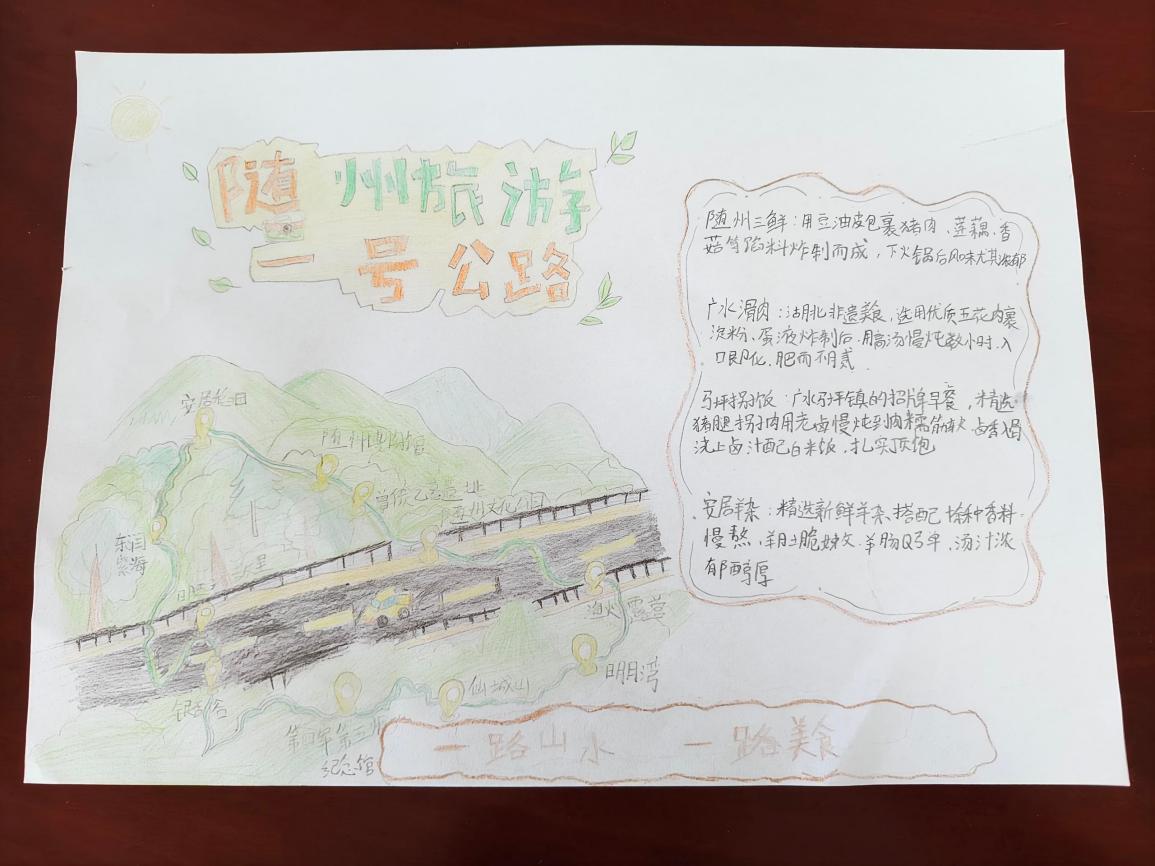 随州旅游
一号公路
随州三鲜：用豆油皮包裹猪肉、莲藕、香
菇等馅料炸制而成，下火锅后风味尤其浓郁
广水滑肉：湖北非遗美食，选用优质五花肉裹
淀粉、蛋液炸制后，用高汤慢炖数小时，入
口即化，肥而不腻
马坪拐饭：广水马坪镇的招牌早餐，精选
猪腿拐肉用老卤慢炖到肉糯筋软，卤香
浇上卤汁配白米饭，扎实顶饱
安居羊杂：精选新鲜羊杂搭配 种香料
慢熬，羊肚脆嫩，羊肠Q弹，汤汁浓
郁醇厚
安居
随州博物馆
曾侯乙 遗址
随州文化公园
十
里
云海
明月湾
仙城山
第四军第
纪念馆
一路山水 一路美食